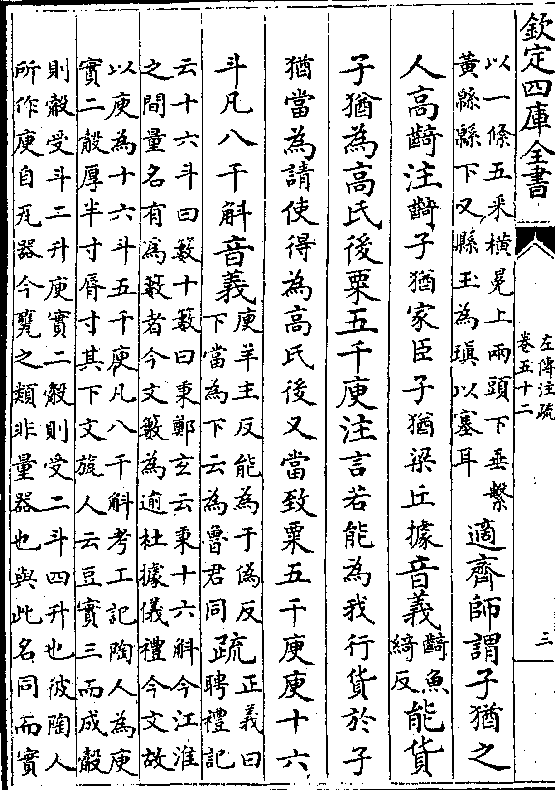 欽定四庫全書
左傳注疏
卷五十二
三
以一條五采橫冕上兩頭下垂繫
黃縣縣下又縣玉為瑱以塞耳
適齊師謂子猶之
人高齮注齮子猶家臣子猶梁丘據音義
齮魚
綺反
能貨
子猶為高氏後粟五千庾注言若能為我行貨於子
猶當為請使得為高氏後又當致粟五千庾庾十六
斗凡八千斛音義
庾羊主反能為于偽反
下當為下云為魯君同
疏
正義曰
聘禮記
云十六斗曰籔十籔曰秉鄭玄云秉十六斛今江淮
之間量名有為籔者今文籔為逾杜據儀禮今文故
以庾為十六斗五千庾凡八千斛考工記陶人為庾
實二觳厚半寸脣寸其下文旊人云豆實三而成觳
則觳受斗二升庾實二觳則受二斗四升也彼陶人
所作庾自瓦器今甕之類非量器也與此名同而實